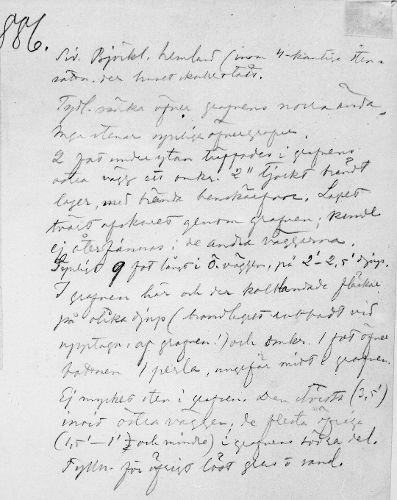 886.
Siv. Björkl. hemlad (inom 4-kantiga sten-
raden, der huset
Tydl. sänka öfver grafvens norra ända.
Inga stenar synliga öfver grafven.
2 fot under ytan träffades i grafvens
östra vägg ett omkr. 2" tjockt brändt
lager, med brända benskärfvor. Lagret
tvärt afskuret genom grafven; kunde
ej återfinnas i de andra väggarna.
Synligt 9 fot långt i Ö. väggen, på 2'-2,5' djup.
I grafven här och der kolblandade fläckar
på olika djup (brandlagret vid
upptagn. af grafven!) och omkr. 1 fot öfver
bottnen 1 perla, ungefär midt i grafven.
Ej mycket sten i grafven. Den största (2,5')
invid östra väggen, de flesta öfriga
(1,5'-1' och mindre) i grafvens södra del.
Fylln. för öfrigt löst grus o sand.